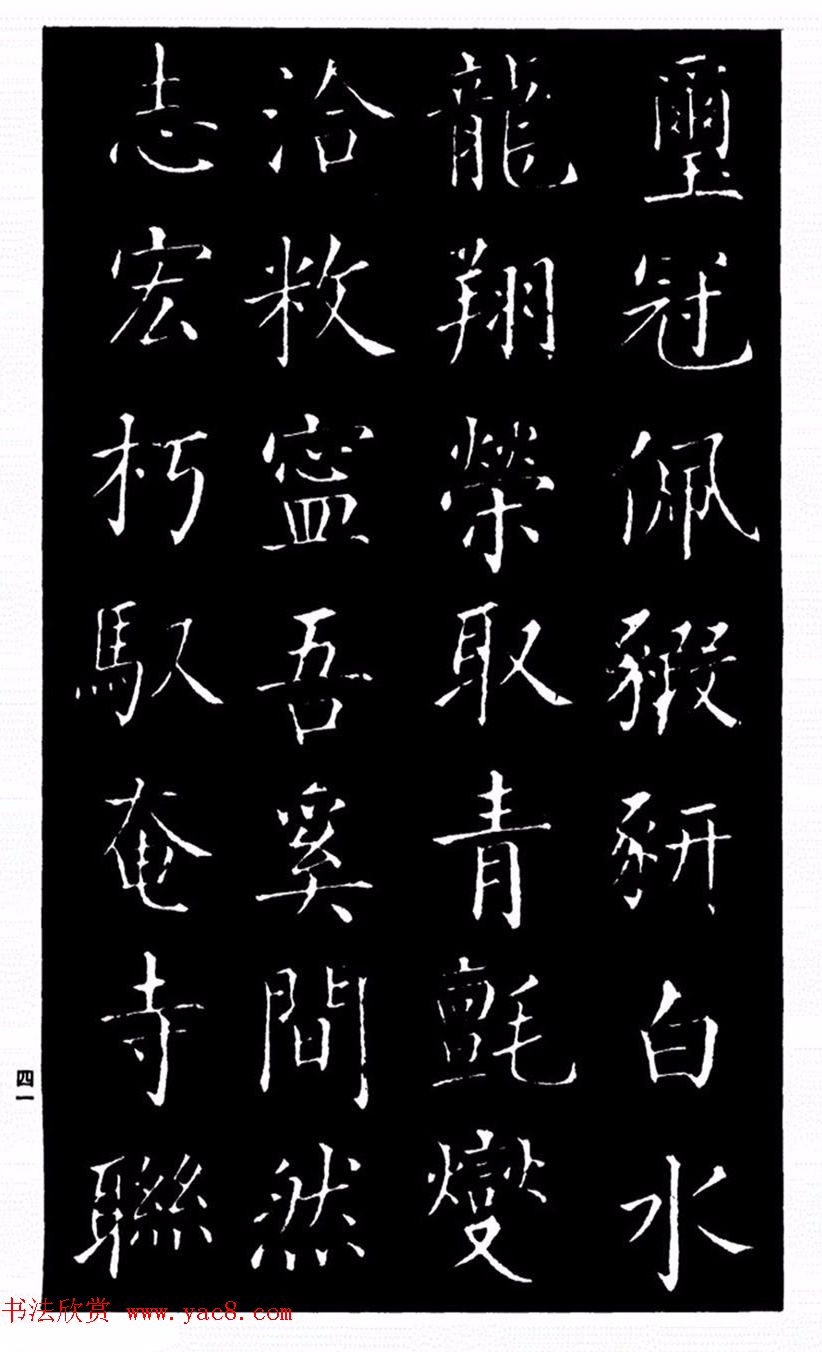 璽冠佩豭豣白水
龍翔榮取青氈燮
洽敉寧吾奚間然
志宏朽馭奄寺聯
四一
书法欣赏 www.yac8.com